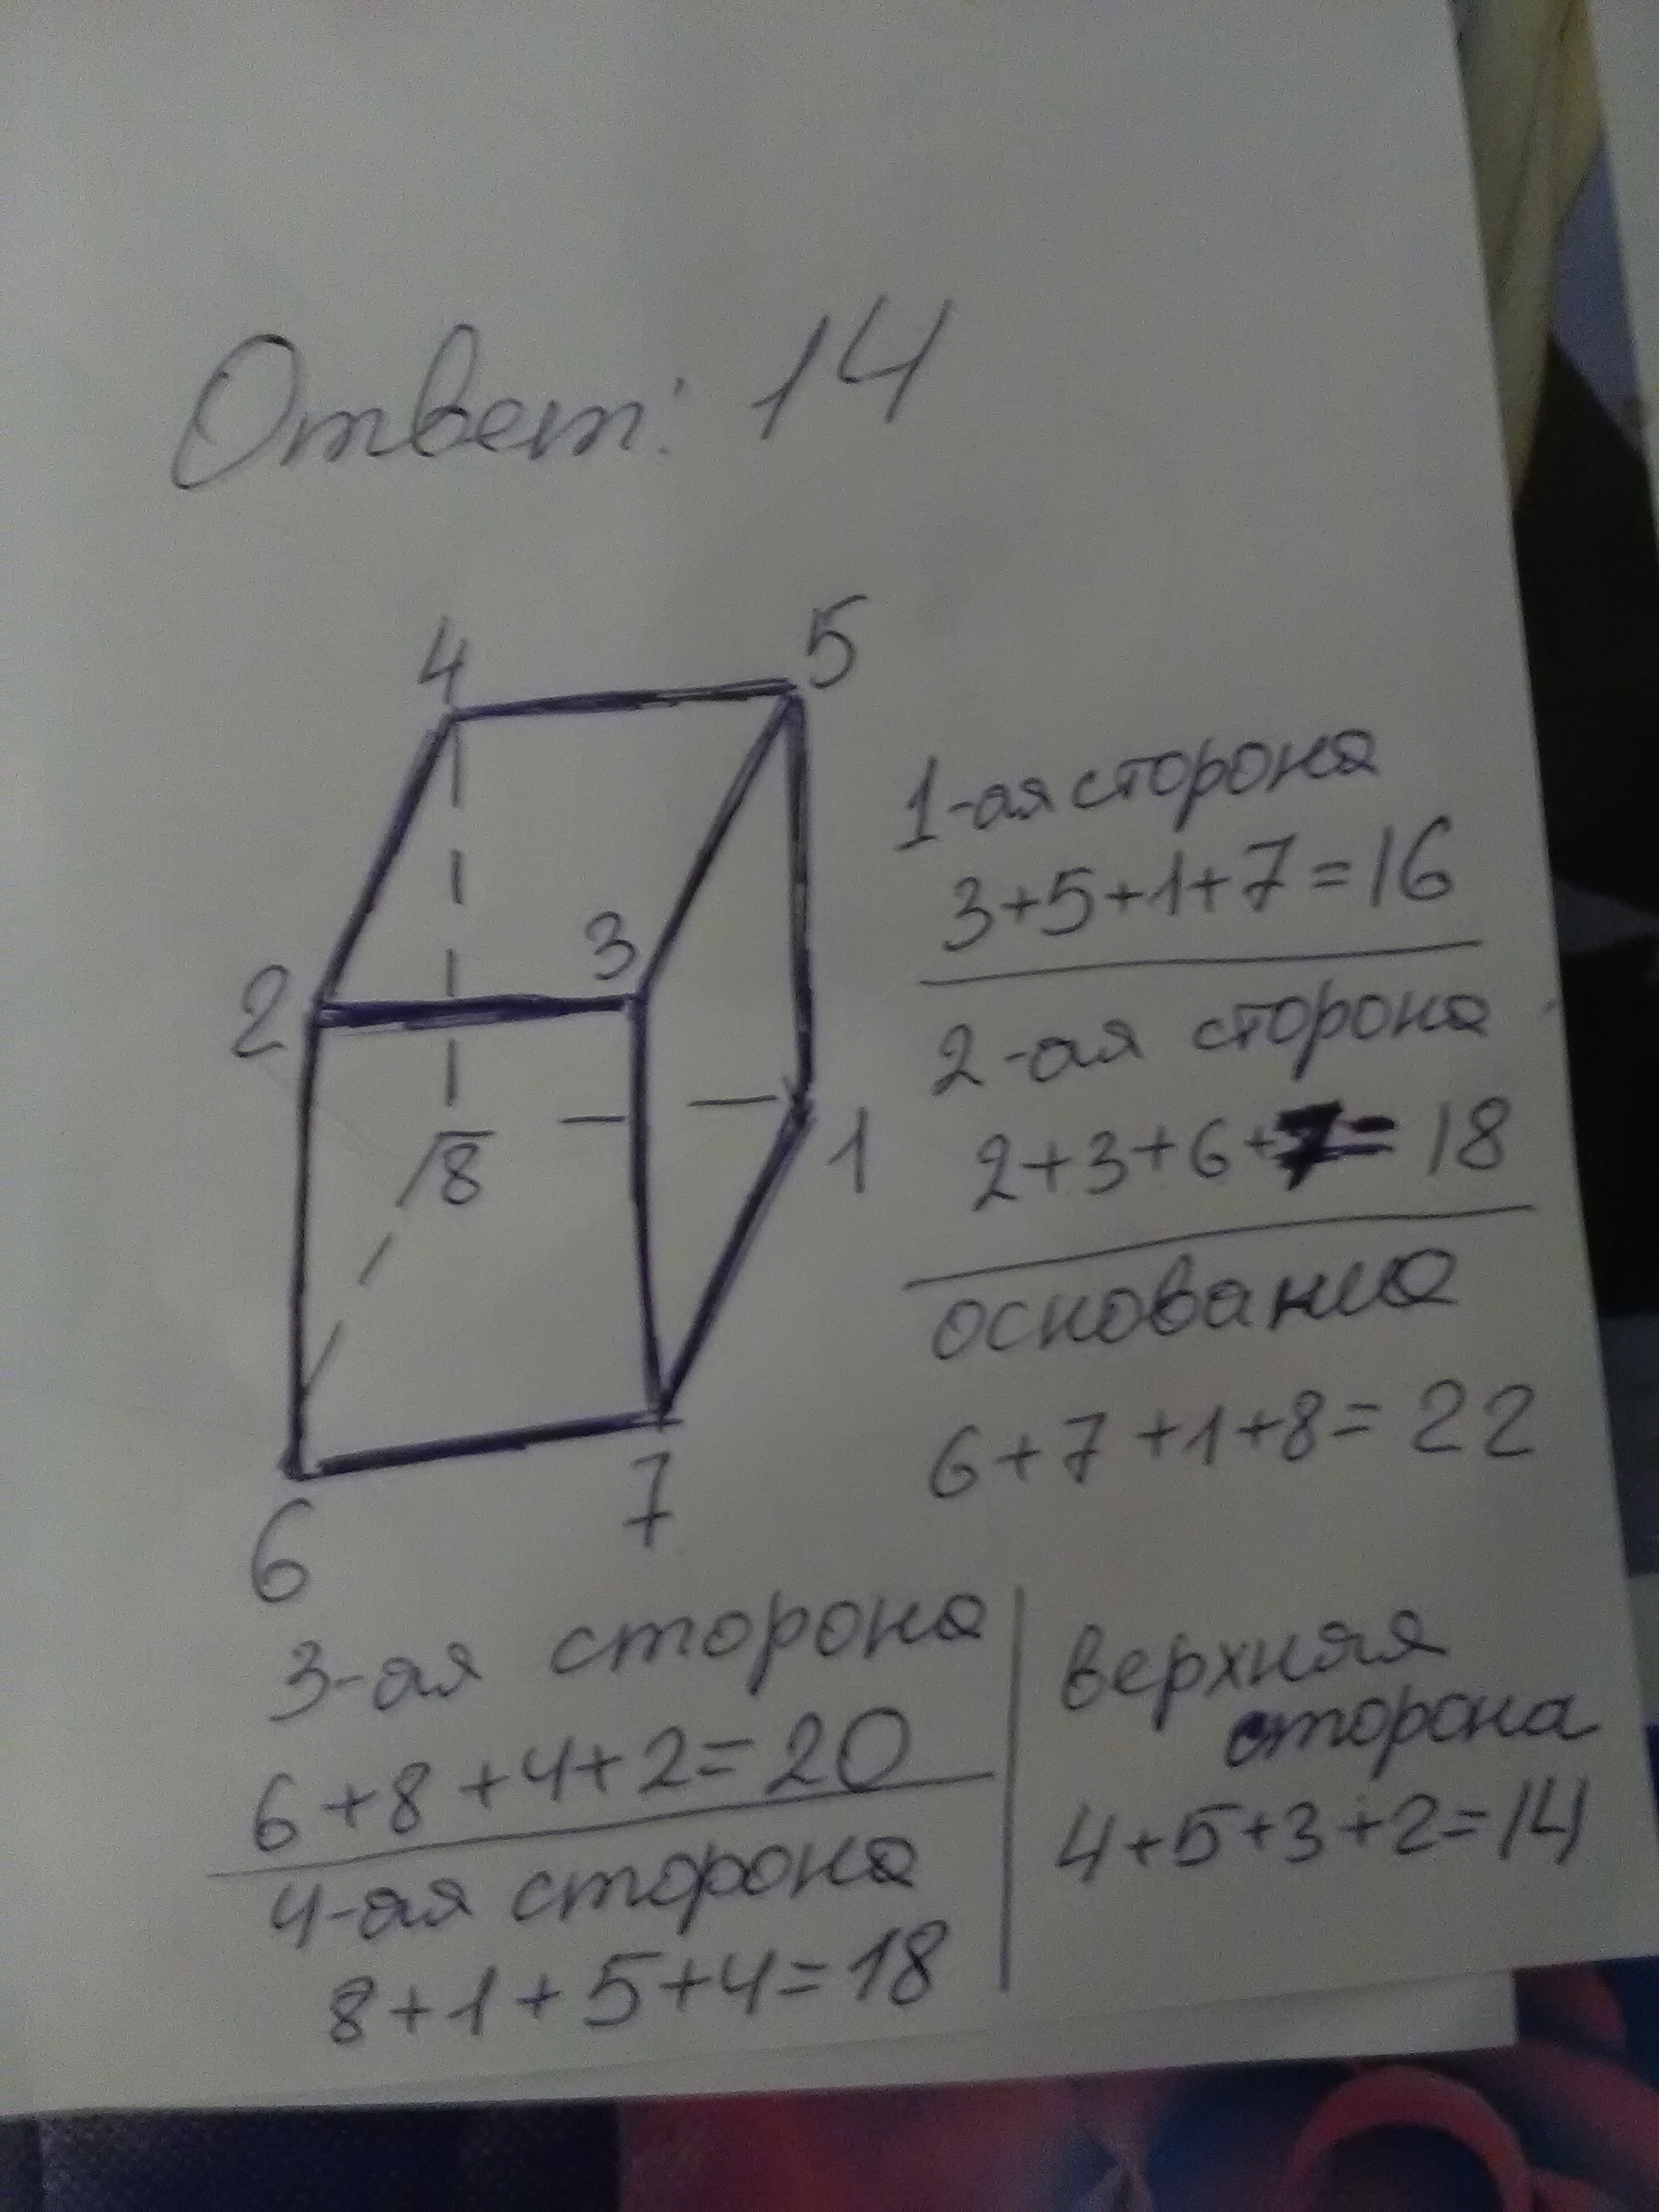 Ответ: 14
4
5
2
3
8
1
6
7
1-ая сторона
3+5+1+7=16
2-ая сторона
2+3+6+7=18
основание
6+7+1+8=22
3-ая сторона
6+8+4+2=20
4-ая сторона
8+1+5+4=18
верхняя
сторона
4+5+3+2=14